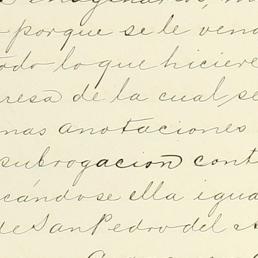 porque se le ven
odo lo que hiciere
resa de la cual, se
nas anotaciones
subrogacion cont
cándose ella igua
de San Pedro del